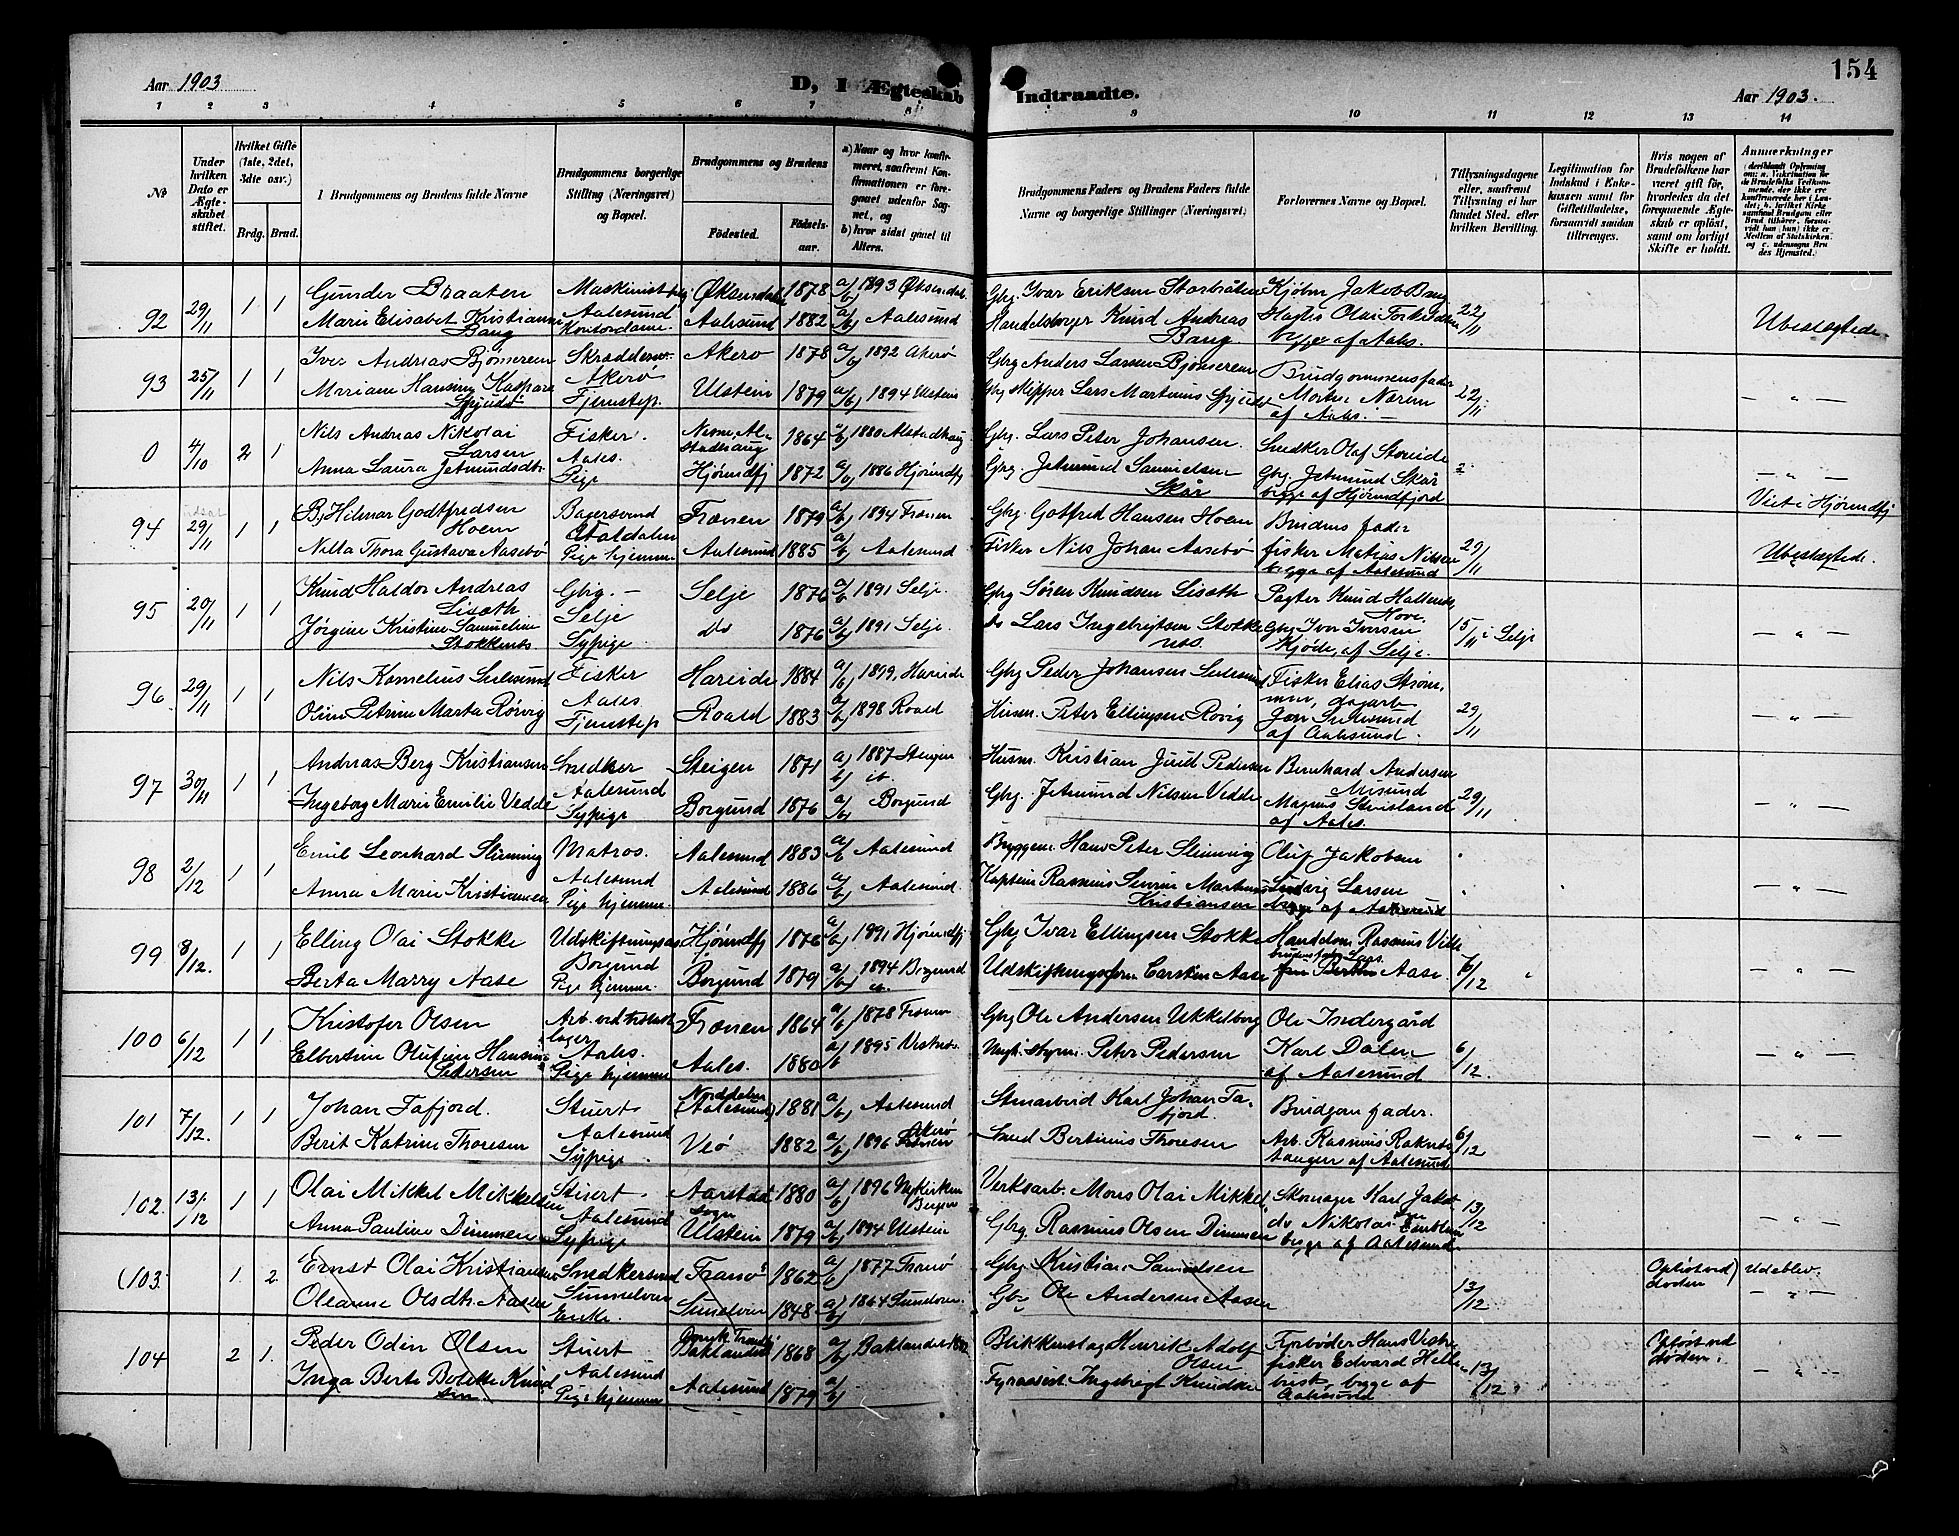 154
Aar 1903
D, I Ægteskab Indtraadte.
Aar 1903.
1 2 3 4 5 6 7 8 9 10 11 12 13 14
No
Under hvilken Dato er Ægteskabet stiftet.
Hvilket Gifte (1ste, 2det, 3die osv.)
Brdg. Brud.
Brudgommens og Brudens fulde Navne
Brudgommens borgerlige Stilling (Næringsvei) og Bopæl.
Brudgommens og Brudens
Fødested.
Fødselsaar.
a) Naar og hvor konfirmeret, saafremt Konfirmationen er foregaaet udenfor Sognet, og
b) hvor sidst gaaet til Alters.
Brudgommens Faders og Brudens Faders fulde Navne og borgerlige Stillinger (Næringsvei)
Forlovernes Navne og Bopæl.
Tillysningsdagene eller, saafremt Tillysning ei har fundet Sted, efter hvilken Bevilling.
Legitimation for Indskud i Enkekassen samt for Giftetilladelse, forsaavidt saadan tiltrænges.
Hvis nogen af Brudefolkene har været gift før, hvorledes da det foregaaende Ægteskab er opløst, samt om lovligt Skifte er holdt.
Anmærkninger
92 29/11 1 1 Gunder Braaten Maskinist Øksendalen 1878 a/b 1893 Øksendal. Gbg. Ivar Eriksen Storbråten Kjøbm Jakob Bang
Marie Elisabet Kristianne Bang Aalesund Kontordame Aalesund 1882 a/b Aalesund Handelsborger Knud Andreas Bang. Olai Torkildsen begge af Aales. 22/11 Ubeslægtede
93 25/11 1 1 Iver Andreas Bjømerem Skrædder Akerø 1878 a/b 1892 Akerø Gbg Anders Larsen Bjømerem Brudgommens fader
Akerø Tjenestep. Ulstein 1879 a/b 1894 Ulstein Gbg Skipper Lars Martinus af Aales. 22/11 — " —
0 4/10 2 1 Nils Andreas Nikolai Larsen Fisker. Aales. 1864 a/b 1880 Alstadhaug Gbg. Lars Peter Johansen. Snedker Olaf
Anna Laura Jetmundsdtr Pige Hjørundfj 1872 a/b 1886 Hjørundfj Gbg. Jetmund Samuelsen Skår Gbg. Jetmund Skår begge af Hjørundfjord — " — Viet i Hjørundfj
94 29/11 1 1 Hilmar Godtfredsen Hoem Bagersvend Frænen 1879 a/b 1894 Frænen Gbg. Gotfred Hansen Hoem Brudens fader
Nilla Thora Gustava Aasebø Pige hjemme Aalesund 1885 a/b Aalesund Fisker Nils Johan Aasebø fisker Matias Nilsen begge af Aalesund 29/11 Ubeslægtede.
95 20/11 1 1 Knud Haldor Andreas Liseth Gbg. — Selje Selje 1876 a/b 1891 Selje. Gbg Søren Knudsen Liseth Pagter Knud Hove
Jørgine Kristine Samueline Stokkenes Sypige do 1876 a/b 1891 Selje. do Lars Ingebrigtsen Stokkenes. Gbg Iver Iversen Kjøde, af Selje. 15/11 i Selje — " —
96 29/11 1 1 Nils Kornelius Sulesund Fisker Hareide 1884 a/b 1899, Hareide Gbg Peder Johansen Sulesund Fisker Elias Strømmen,
Oline Petrine Marta Rørvig Aales Tjenestep Roald 1883 a/b 1898 Roald Husm. Peter Ellingsen Rovig af Aalesund. 29/11 — " —
97 30/11 1 1 Andreas Berg Kristiansen Snedker Steigen 1871 a/b 1887 Steigen Husm. Kristian Juul Pedersen Bernhard Andersen Misund
Ingeborg Marie Emilie Vedde Aalesund Sypige Borgund 1876 a/b Borgund Gbg. Jetmund Nilsen Vedde Magnus af Aales. 29/11 — " —
98 2/12 1 1 Emil Leonhard Slinning Matros. Aalesund 1883 a/b Aalesund Bryggem. Hans Peter Slinning Oluf Jakobsen
Anna Marie Kristiansen Aalesund Pige hjemme. Aalesund 1886 a/b Aalesund. Kaptein Rasmus Sevrin Martinus Kristiansen Ludvig Larsen begge af Aalesund — " —
99 8/12. 1 1 Elling Olai Stokke Hjørundfj 1876 a/b 1891 Hjørundfj Gbg Ivar Ellingsen Stokke Handelsm. Rasmus Vidle
Berta Marry Aase Borgund Pige hjemme. Borgund 1879 a/b 1894 Borgund Udskiftningsform Carsten Aase Aase. 6/12 — " —
100 6/12 1 1 Kristofer Olsen Frænen 1864 a/b 1878 Frænen Gbg Ole Andersen Ukkelberg Ole Indergård
Elbertine Olufine Hansine Pedersen Aales. Pige hjemme Aales. 1880 a/b 1895 Vestnes. Peter Pedersen Karl Dalen af Aalesund 6/12. — " —
101 7/12. 1 1 Johan Tafjord. Stuert Norddalen (Aalesund) 1881 a/b Aalesund Stenarbeid Karl Johan Tafjord. Brudgom fader.
Berit Katrine Thoresen Aalesund Sypige. Veø 1882 a/b 1896 Akerø Smed Bertinus Thoresen Arb. Rasmus af Aalesund 6/12 — " —
102. 13/12 1 1 Olai Mikkel Mikkelsen Stuert Aarstad sogn 1880 a/b 1896 Nykirken Bergen Verksarb. Mons Olai Mikkel. Skomager Karl Jakobsen
Anna Pauline Dimmen Aalesund Sypige Ulstein 1879 a/b 1894 Ulstein Gbg. Rasmus Olsen Dimmen do Nikolai begge af Aalesund 13/12 — " —
(103. 1. 2. Ernst Olai Kristiansen Snedkersvend Tranø 1862 a/b 1877 Tranø Gbg Kristian Samuelsen Opløst ved døden) Udeblev.
Oleanne Olsdtr. Aasen Sunnelven Enke. Sunelven 1848 a/b 1864 Gbr Ole Andersen Aasen 13/12 — " —
104 2 1. Peder Odin Olsen Stuert Baklandet 1868 a/b Baklandet Blikkenslag Henrik Adolf Olsen Fyrbøder Hans Opløst ved døden.
Inga Berte Bolette Knudsen Aalesund Pige hjemme Aalesund 1879 a/b Fyrassist. Ingebregt Knudsen fisker Edvard begge af Aalesund 13/12 — " —